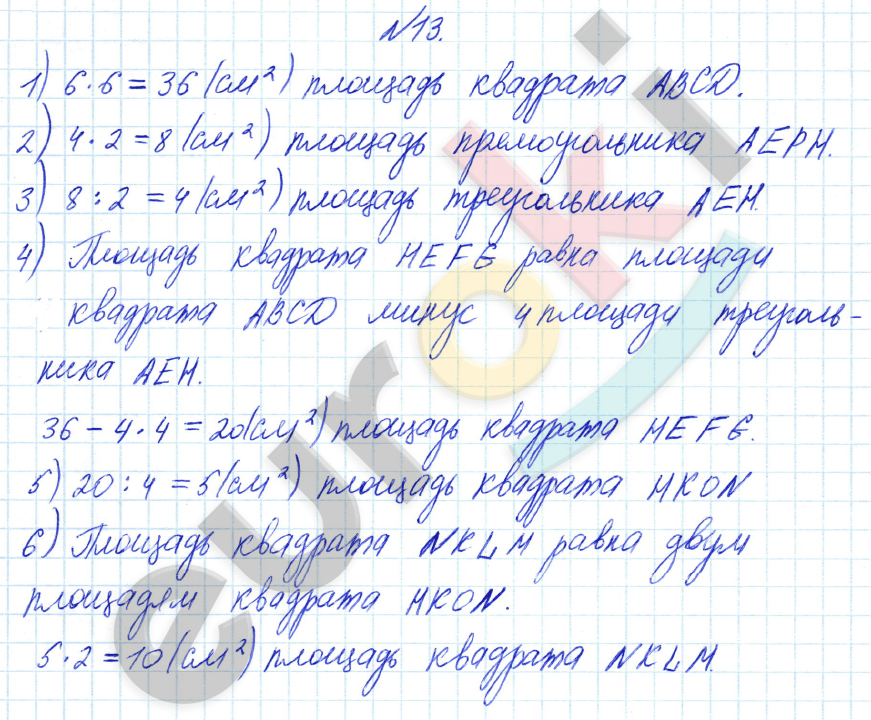 №13.
1) 6·6 = 36 (см²) площадь квадрата ABCD.
2) 4·2 = 8 (см²) площадь прямоугольника AEPH.
3) 8 : 2 = 4 (см²) площадь треугольника AEH.
4) Площадь квадрата HEFG равна площади
квадрата ABCD минус 4 площади треуголь-
ника AEH.
36 - 4·4 = 20 (см²) площадь квадрата HEFG.
5) 20 : 4 = 5 (см²) площадь квадрата HKON
6) Площадь квадрата NKLM равна двум
площадям квадрата HKON.
5·2 = 10 (см²) площадь квадрата NKLM.
euroki